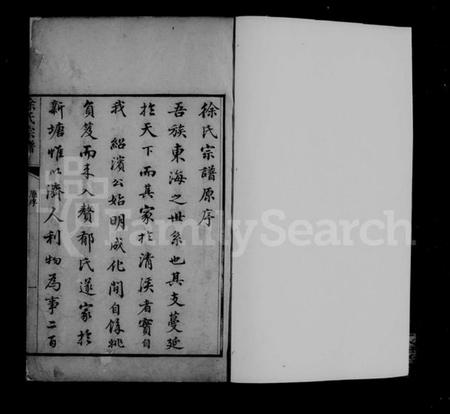 徐氏宗譜原序
吾族東海之世系也其支蔓延
於天下而其家於清溪者實自
我 紹濱公始明成化間自餘姚
負笈而來入贅郁氏遂家於
新塘惟以濟人利物為事二百
徐氏宗譜
原序
一
FamilySearch